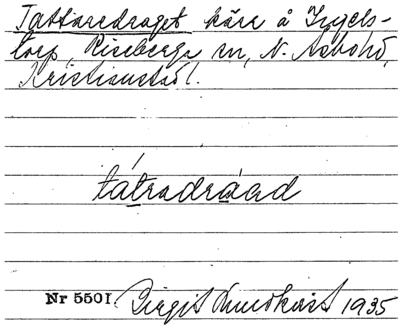 Tattaredraget kärr å Ingels-
torp, Riseberga sn, N. Åsbo hd,
Kristianstad l.
tátradráad
Nr 5501. Birgit Lundkvist 1935